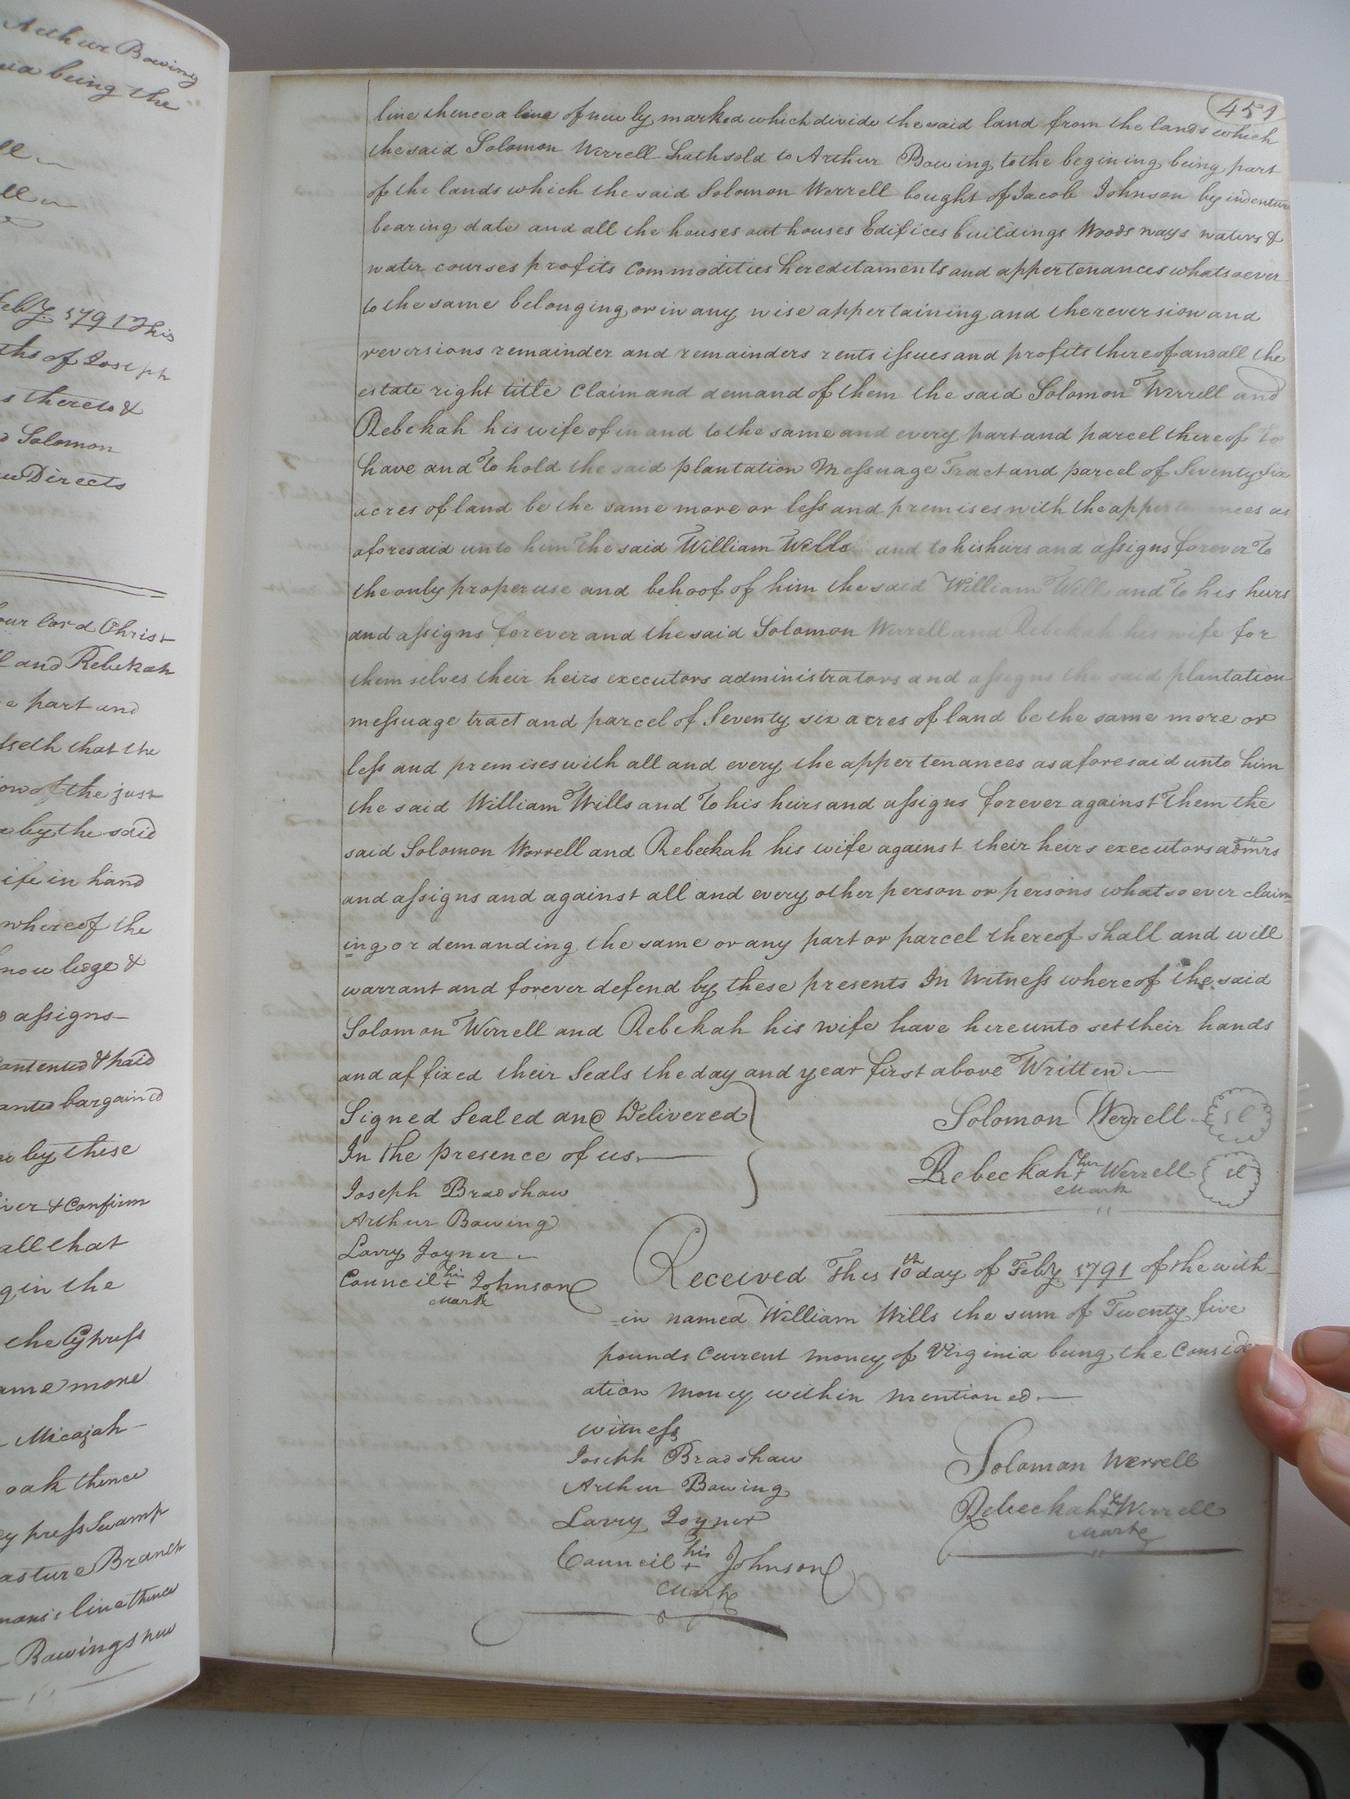 Arthur Bowing
being the
Feby. 1791 This
of Joseph
s thereto &
Solomon
Directs
our lord Christ
and Rebekah
part and
that the
of the just
by the said
wife in hand
whereof the
now ledge &
assigns
contented & paid
bargained
by these
& Confirm
all that
g in the
the Cypress
same more
Micajah
oak thence
Cypress Swamp
Pasture Branch
line thence
Bowings new
451
line thence a line of newly marked which divide the said land from the lands which
the said Solomon Worrell hath sold to Arthur Bowing to the begining being part
of the lands which the said Solomon Worrell bought of Jacob Johnson by indenture
bearing date and all the houses out houses Edifices buildings Woods ways waters &
water courses profits Commodities hereditaments and appertenances whatsoever
to the same belonging or in any wise appertaining and the reversion and
reversions remainder and remainders rents issues and profits thereof and all the
estate right title Claim and demand of them the said Solomon Worrell and
Rebekah his wife of in and to the same and every part and parcel thereof To
have and To hold the said plantation Messuage Tract and parcel of Seventy six
acres of land be the same more or less and premises with the appertenances as
aforesaid unto him the said William Wills and to his heirs and assigns forever To
the only proper use and behoof of him the said William Wills and To his heirs
and assigns forever and the said Solomon Worrell and Rebekah his wife for
them selves their heirs executors administrators and assigns the said plantation
messuage tract and parcel of Seventy six acres of land be the same more or
less and premises with all and every the appertenances as aforesaid unto him
the said William Wills and To his heirs and assigns forever against Them the
said Solomon Worrell and Rebeckah his wife against their heirs executors admrs
and assigns and against all and every other person or persons whatsoever claim
ing or demanding the same or any part or parcel thereof shall and will
warrant and forever defend by these presents In Witness whereof the said
Solomon Worrell and Rebekah his wife have hereunto set their hands
and affixed their Seals the day and year first above Written
Signed Sealed and Delivered
In the presence of us
Joseph Bradshaw
Arthur Bowing
Larry Joyner
Council his + Johnson
Mark
Solomon Worrell Sl
Rebeckah her + Worrell Sl
Mark
Received This 10th day of Feby 1791 of the with
in named William Wills the sum of Twenty five
pounds Current Money of Virginia being the Consider
ation Money within mentioned
witness
Joseph Bradshaw
Arthur Bowing
Larry Joyner
Council his + Johnson
Mark
Solomon Worrell
Rebeckah her + Worrell
Mark